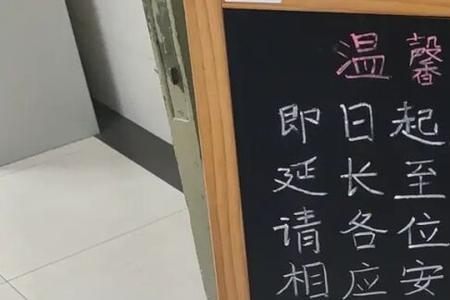 温馨
即日起
延长至
请各位
相应安